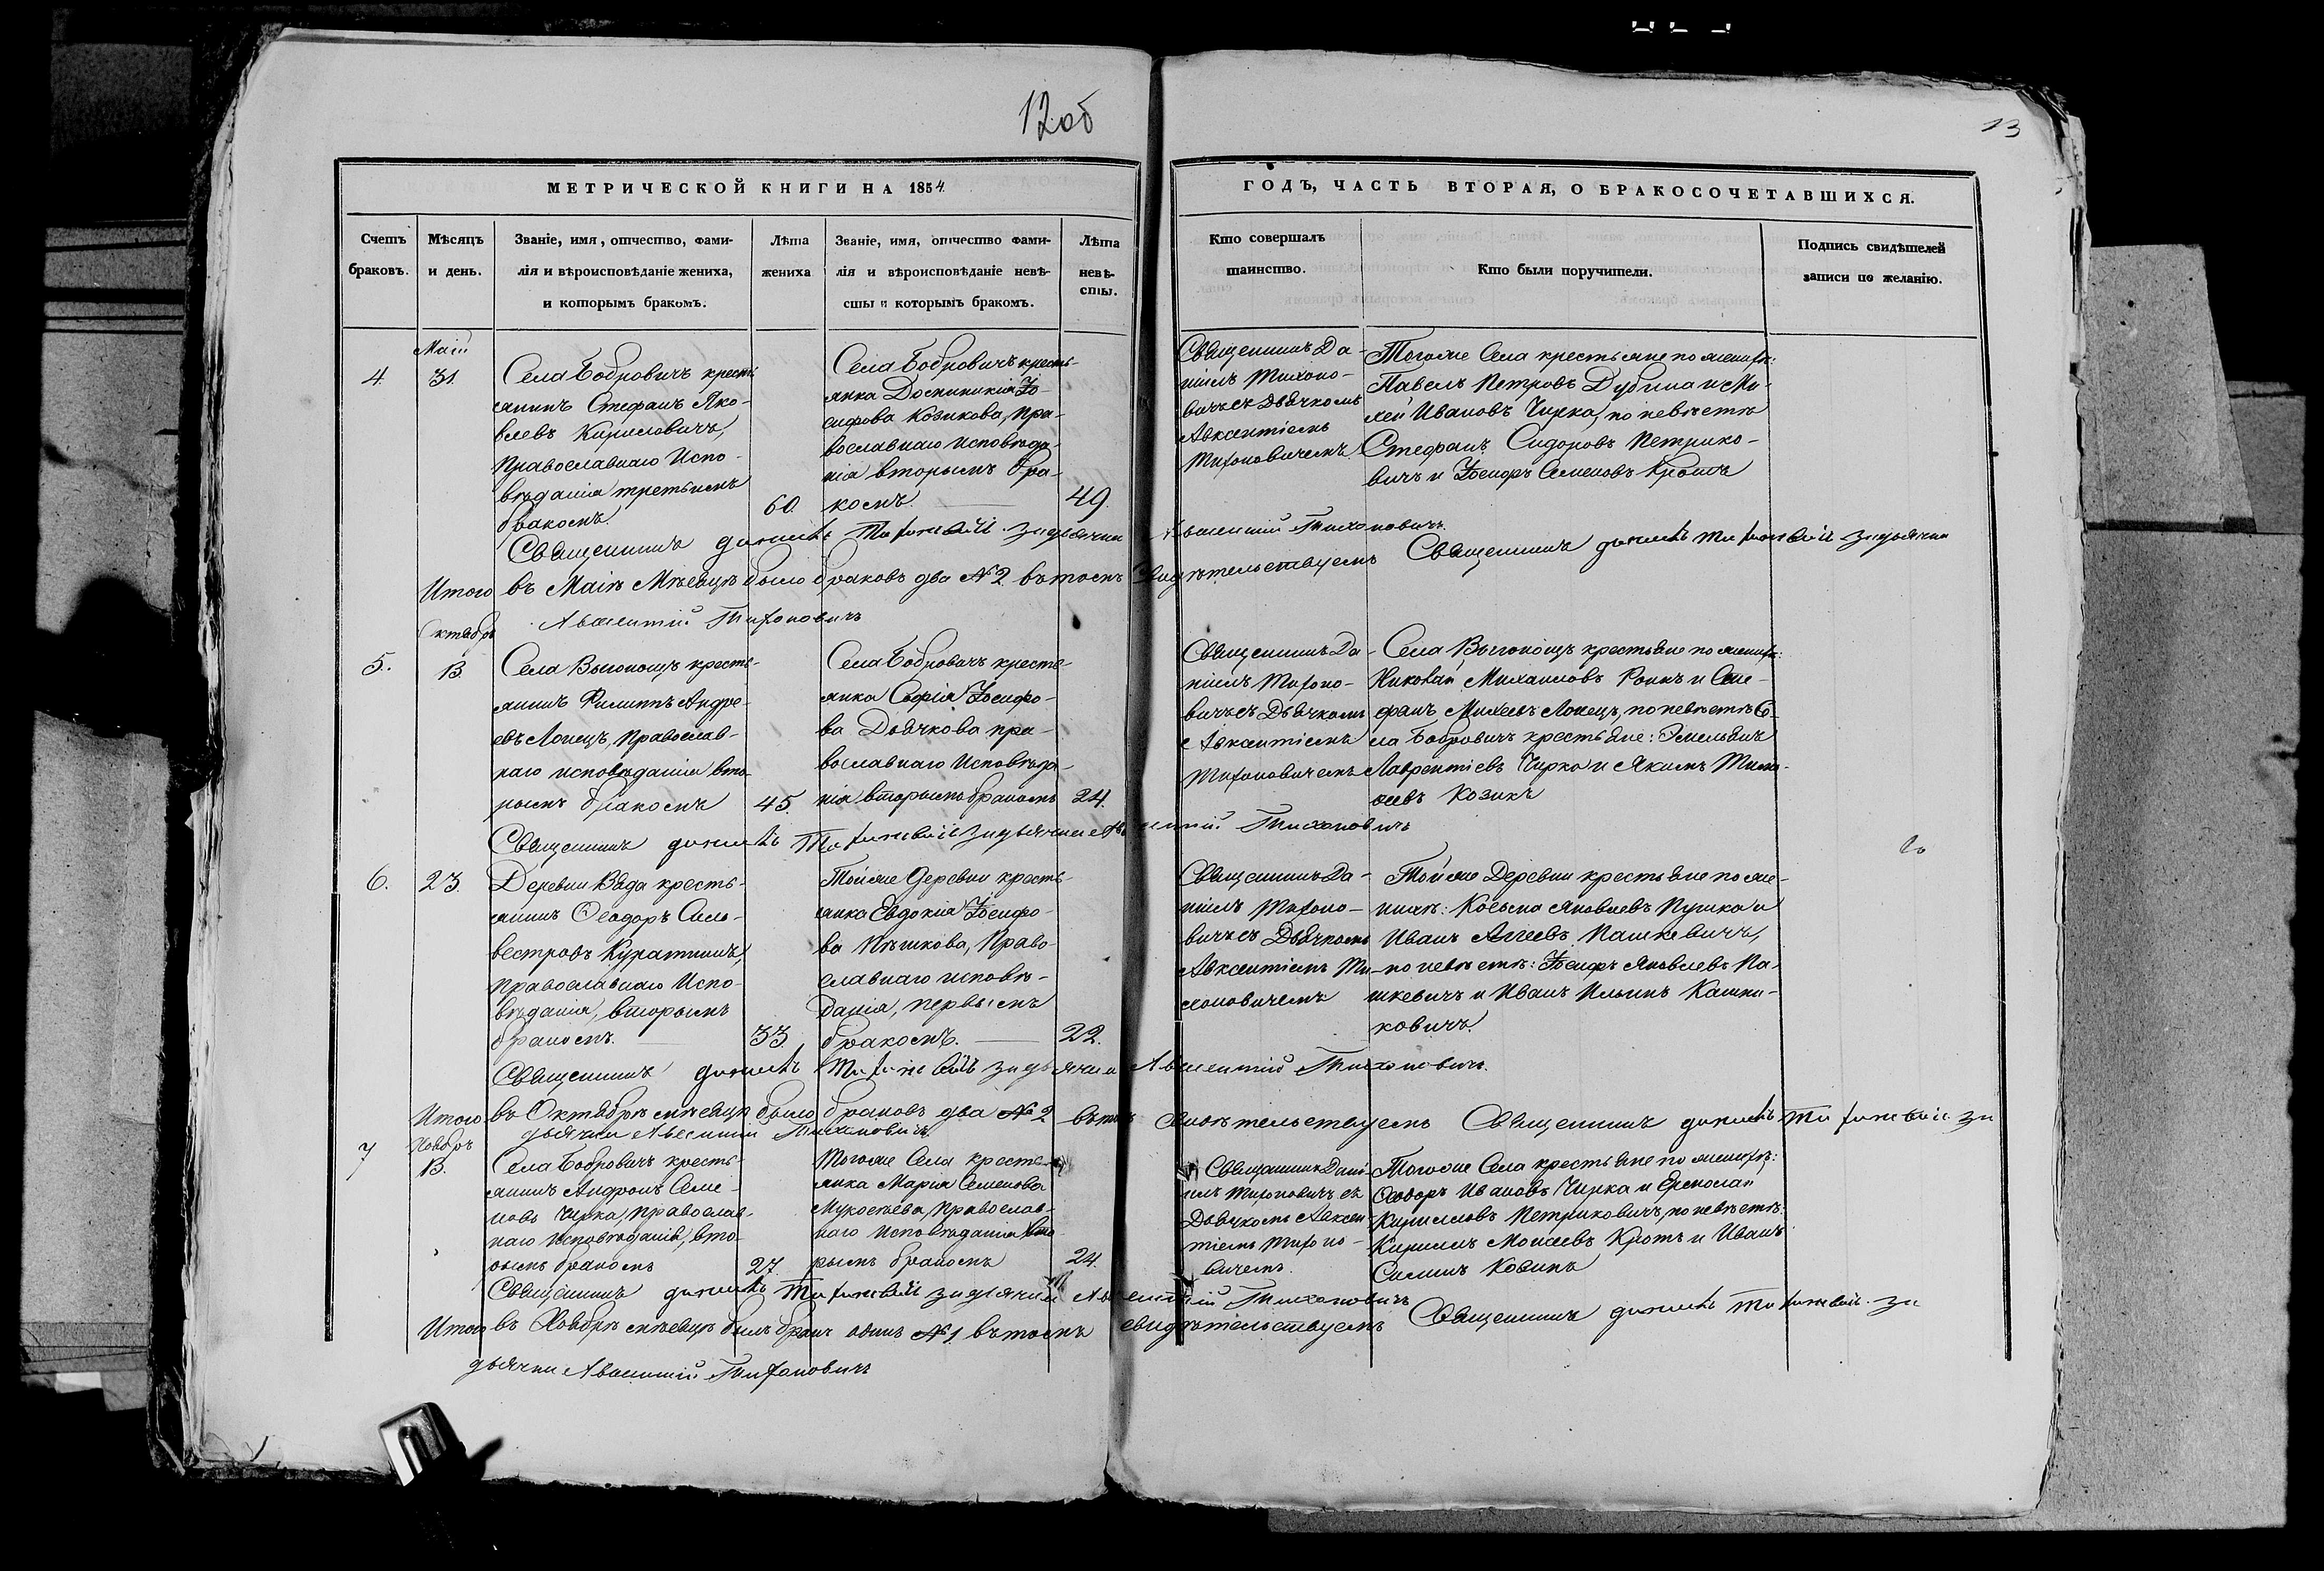 12об
13
МЕТРИЧЕСКОЙ КНИГИ НА 1854
ГОДЪ, ЧАСТЬ ВТОРАЯ, О БРАКОСОЧЕТАВШИХСЯ.
Счетъ
браковъ.
Мѣсяцъ
и день.
Званіе, имя, отчество, фами-
лія и вѣроисповѣданіе жениха,
и которымъ бракомъ.
Лѣта
жениха
Званіе, имя, отчество фами-
лія и вѣроисповѣданіе невѣ-
сты и которымъ бракомъ.
Лѣта
невѣ-
сты.
Кто совершалъ
таинство.
Кто были поручители.
Подпись свидѣтелей
записи по желанію.
4.
Маій
31.
Села Бобровичъ кресть-
янинъ Стефанъ Яко-
влевъ Кириловичъ,
Православнаго Испо-
вѣданія третьимъ
бракомъ.
60.
Села Бобровичъ кресть-
янка Домникія Іо-
сифова Козикова, Пра-
вославнаго Исповѣда-
нія вторымъ бра-
комъ.
49.
Священникъ Да-
ніилъ Тихоно-
вичъ съ Дьячкомъ
Авксентіемъ
Тихоновичемъ
Тогоже Села крестьяне по женихѣ:
Павелъ Петровъ Дубина и Ми-
хей Ивановъ Чирка, по невѣстѣ
Стефанъ Сидоровъ Петрико-
вичъ и Іосифъ Семеновъ Кротъ
Священникъ Даниилъ Тихоновичъ дьячокъ Авксентий Тихоновичъ
Итого въ Маіѣ Мѣсяцѣ было браковъ два №2 въ томъ свидѣтельствуемъ Священникъ Даниилъ Тихоновичъ дьячокъ
Авксентий Тихоновичъ
5.
Октябрь
13.
Села Выгонощъ кресть-
янинъ Филиппъ Андре-
евъ Лопецъ, Православ-
наго исповѣданія вто-
рымъ бракомъ
45.
Села Бобровичъ кресть-
янка Софія Іосифо-
ва Дьячкова пра-
вославнаго Исповѣда-
нія вторымъ бракомъ
24.
Священникъ Да-
ніилъ Тихоно-
вичъ съ Дьячкомъ
Авксентіемъ
Тихоновичемъ
Села Выгонощъ крестьяне по женихѣ:
Николай Михаиловъ Роикъ и Сте-
фанъ Михеевъ Лопецъ, по невѣстѣ Се-
ла Бобровичъ крестьяне: Эмельянъ
Лаврентіевъ Чирка и Якимъ Тимо-
еевъ Козикъ
Священникъ Даниилъ Тихоновичъ дьячокъ Авксентий Тихоновичъ
6.
23.
Деревни Вяда кресть-
янинъ Ѳеодоръ Силь-
вестровъ Куратникъ,
Православнаго Испо-
вѣданія, вторымъ
бракомъ.
33
Тойже Деревни кресть-
янка Евдокія Іосифо-
ва Пѣшкова, Право-
славнаго исповѣ-
данія, первымъ
бракомъ.
22.
Священникъ Да-
ніилъ Тихоно-
вичъ съ Дьячкомъ
Авксентіемъ Ти-
хоновичемъ
Тойже Деревни крестьяне по же-
нихѣ: Косьма Яковлевъ Пушка и
Иванъ Агеевъ Пашкевичъ,
по невѣстѣ: Іосифъ Яковлевъ Па-
шкевичъ и Иванъ Ильинъ Кашпи-
ковичъ.
Священникъ Даниилъ Тихоновичъ дьячокъ Авксентий Тихоновичъ.
Итого въ Октябрѣ мѣсяцѣ было браковъ два №2 въ томъ свидѣтельствуемъ Священникъ Даниилъ Тихоновичъ
дьячокъ Авксентий Тихоновичъ
7
Ноябрь
13.
Села Бобровичъ кресть-
янинъ Андронъ Семе-
новъ Чирка, православ-
наго исповѣданія, вто-
рымъ бракомъ
27.
Тогоже Села кресть-
янка Марія Семенова
Мукосѣева, Православ-
наго Исповѣданія вто-
рымъ бракомъ
24.
Священникъ Дані-
илъ Тихоновичъ съ
Дьячкомъ Авксен-
тіемъ Тихоно-
вичемъ.
Тогоже Села крестьяне по женихѣ:
Ѳеодоръ Ивановъ Чирка и Ермолай
Кириловъ Петриковичъ, по невѣстѣ:
Кирилъ Моисеевъ Кротъ и Иванъ
Силинъ Козикъ
Священникъ Даниилъ Тихоновичъ дьячокъ Авксентий Тихоновичъ
Итого въ Ноябрѣ мѣсяцѣ былъ бракъ одинъ №1 въ томъ свидѣтельствуемъ Священникъ Даниилъ Тихоновичъ
дьячокъ Авксентий Тихоновичъ